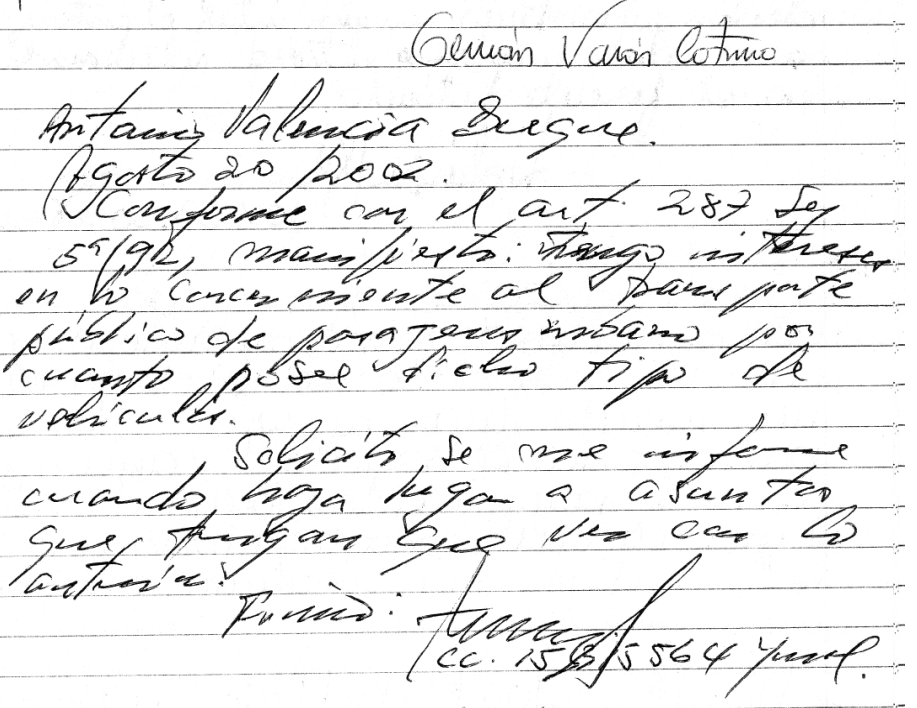 Germán Varón Cotrino
Antonio Valencia Duque.
Agosto 20/2002.
Conforme con el art. 287 Ley
5ª/92, manifiesto: tengo intereses
en lo concerniente al transporte
público de pasajeros urbano por
cuanto posee dicho tipo de
vehículos.
Solicito se me informe
cuando haya lugar a asuntos
que tengan que ver con lo
anterior.
Firmó:
CC.